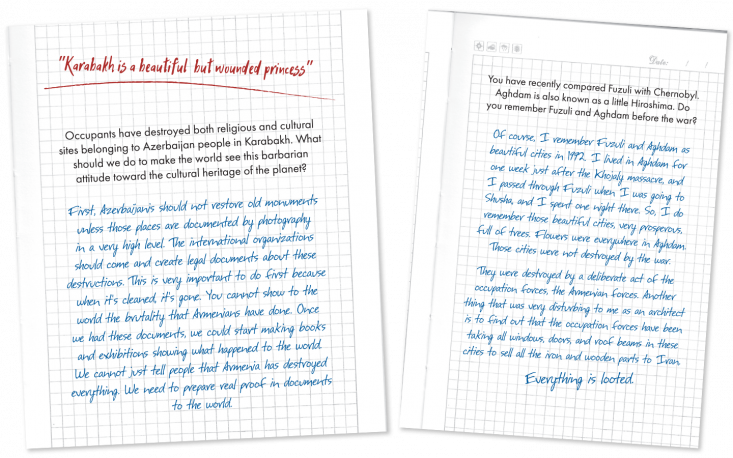 "Karabakh is a beautiful but wounded princess"
Occupants have destroyed both religious and cultural
sites belonging to Azerbaijan people in Karabakh. What
should we do to make the world see this barbarian
attitude toward the cultural heritage of the planet?
First, Azerbaijanis should not restore old monuments
unless those places are documented by photography
in a very high level. The international organizations
should come and create legal documents about these
destructions. This is very important to do first because
when it's cleaned, it's gone. You cannot show to the
world the brutality that Armenians have done. Once
we had these documents, we could start making books
and exhibitions showing what happened to the world.
We cannot just tell people that Armenia has destroyed
everything. We need to prepare real proof in documents
to the world.
Date: / /
You have recently compared Fuzuli with Chernobyl.
Aghdam is also known as a little Hiroshima. Do
you remember Fuzuli and Aghdam before the war?
Of course, I remember Fuzuli and Aghdam as
beautiful cities in 1992. I lived in Aghdam for
one week just after the Khojaly massacre, and
I passed through Fuzuli when I was going to
Shusha, and I spent one night there. So, I do
remember those beautiful cities, very prosperous,
full of trees. Flowers were everywhere in Aghdam.
Those cities were not destroyed by the war.
They were destroyed by a deliberate act of the
occupation forces, the Armenian forces. Another
thing that was very disturbing to me as an architect
is to find out that the occupation forces have been
taking all windows, doors, and roof beams in these
cities to sell all the iron and wooden parts to Iran.
Everything is looted.